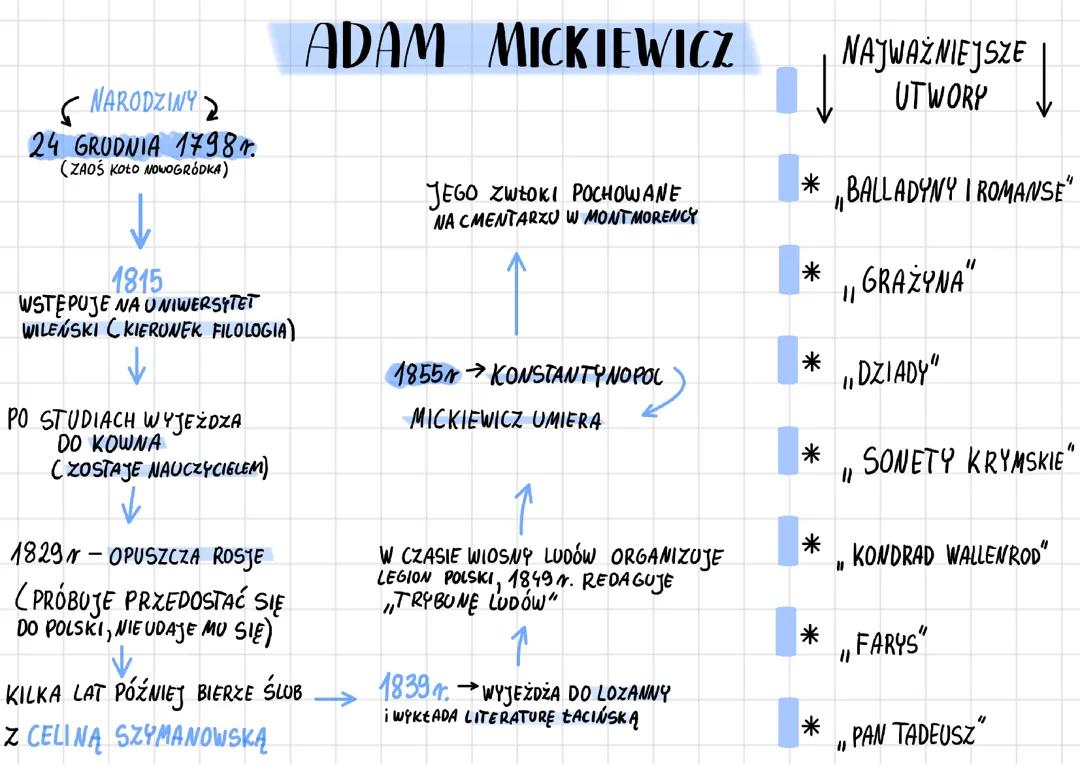 ADAM MICKIEWICZ
NARODZINY
24 GRUDNIA 1798 r.
(ZAOŚ KOŁO NOWOGRÓDKA)
1815
WSTĘPUJE NA UNIWERSYTET
WILEŃSKI (KIERUNEK FILOLOGIA)
PO STUDIACH WYJEŻDZA
DO KOWNA
(ZOSTAJE NAUCZYCIELEM)
1829 r – OPUSZCZA ROSJE
(PRÓBUJE PRZEDOSTAĆ SIĘ
DO POLSKI, NIE UDAJE MU SIĘ)
KILKA LAT PÓŹNIEJ BIERZE ŚLUB
Z CELINĄ SZYMANOWSKĄ
1839 r. → WYJEŻDŻA DO LOZANNY
i WYKŁADA LITERATURĘ ŁACIŃSKĄ
W CZASIE WIOSNY LUDÓW ORGANIZUJE
LEGION POLSKI, 1849 r. REDAGUJE
„TRYBUNĘ LUDÓW"
1855 r → KONSTANTYNOPOL
MICKIEWICZ UMIERA
JEGO ZWŁOKI POCHOWANE
NA CMENTARZU W MONTMORENCY
NAJWAŻNIEJSZE
UTWORY
* „BALLADYNY I ROMANSE"
* „GRAŻYNA"
* „DZIADY"
* „SONETY KRYMSKIE"
* „KONDRAD WALLENROD"
* „FARYS"
* „PAN TADEUSZ"